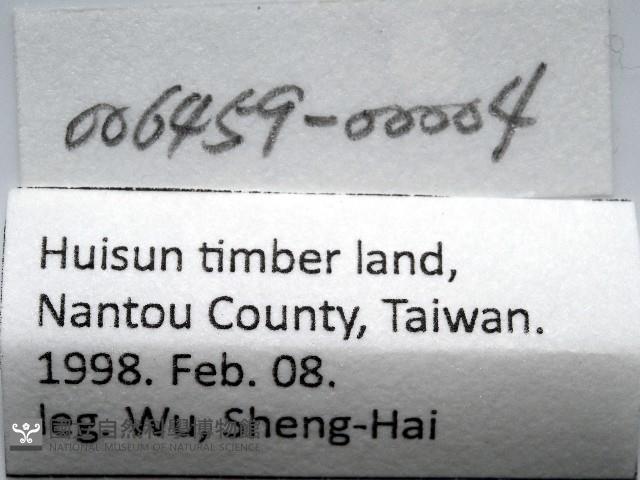 006459-00004
Huisun timber land,
Nantou County, Taiwan.
1998. Feb. 08.
leg. Wu, Sheng-Hai
國立自然科學博物館
NATIONAL MUSEUM OF NATURAL SCIENCE